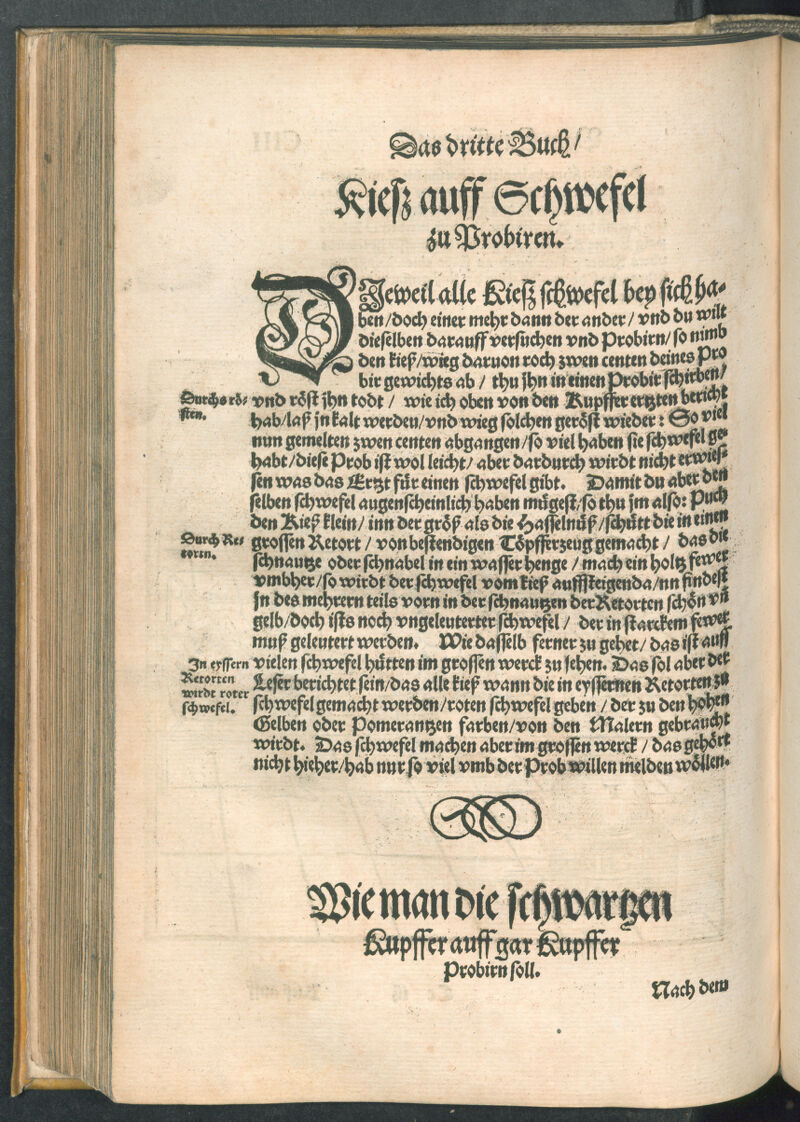 Das dritte Buch/
Kiesz auff Schwefel
zu Probiren.
DJeweil alle Kiesz schwefel bey sich ha-
ben/doch einer mehr dann der ander/ vnd du wilt
dieselben darauff versuchen vnd Probirn/so nimb
den kieß/wieg daruon roch zwen centen deines Pro
bir gewichts ab / thu jhn in einen Probir schirben/
Durchs rö-
sten.
vnd röst jhn todt / wie ich oben von den Kupffer ertzten bericht
hab/laß jn kalt werden/vnd wieg solchen geröst wieder: So viel
nun gemelten zwen centen abgangen/so viel haben sie schwefel ge-
habt/diese Prob ist wol leicht/ aber dardurch wirdt nicht erwie-
sen was das Ertzt für einen schwefel gibt. Damit du aber den
selben schwefel augenscheinlich haben mügest/so thu jm also: Puch
den Kieß klein/ inn der größ als die Hasselnüß/schütt die in einen
Durch Re-
torten.
grossen Retort / von bestendigen Töpfferzeug gemacht / das die
schnautze oder schnabel in ein wasser henge / mach ein holtz fewer
vmbher/so wirdt der schwefel vom kieß auffsteigenda/nn findest
jn des mehrern teils vorn in der schnautzen der Retorten schön vñ
gelb/doch ists noch vngeleuterter schwefel / der in starckem fewer
muß geleutert werden. Wie dasselb ferner zu gehet/das ist auff
In eyssern
Retorten
wirdt roter
schwefel.
vielen schwefel hütten im grossen werck zu sehen. Das sol aber der
Leser berichtet sein/das alle kieß wann die in eyssernen Retorten zu
schwefel gemacht werden/roten schwefel geben / der zu den hohen
Gelben oder Pomerantzen farben/von den Malern gebraucht
wirdt. Das schwefel machen aber im grossen werck / das gehört
nicht hieher/hab nur so viel vmb der Prob willen melden wöllen.
Wie man die schwartzen
Kupffer auff gar Kupffer
Probirn soll.
Nach dem